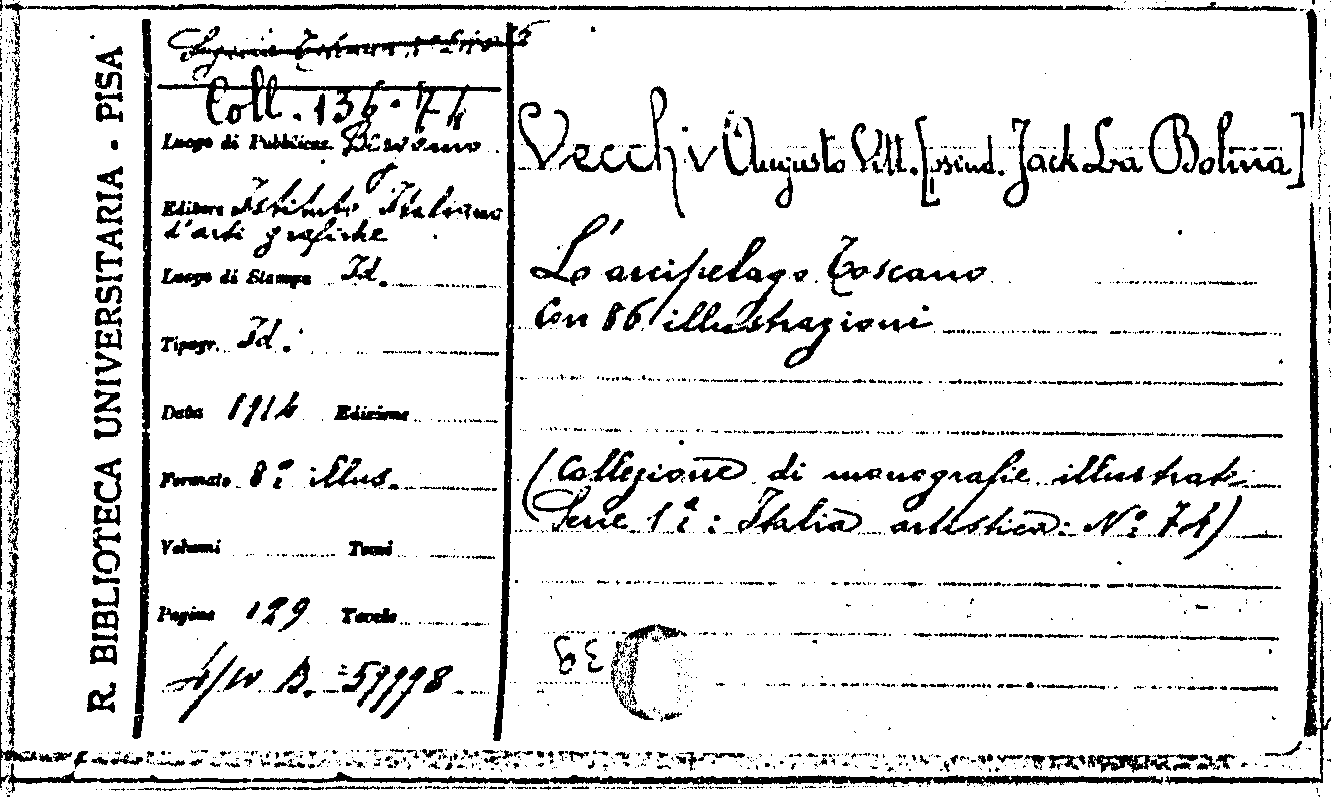 R. BIBLIOTECA UNIVERSITARIA - PISA
Coll. 136. 74
Luogo di Pubblicaz. Bergamo
Editore Istituto Italiano
d'arti grafiche
Luogo di Stampa Id.
Tipogr. Id.
Data 1914 Edizione
Formato 8° illus.
Volumi Tomi
Pagine 129 Tavole
B. 59998
Vecchi Augusto Vitt. [pseud. Jack La Bolina]
L'arcipelago Toscano
Con 86 illustrazioni
(Collezione di monografie illustrate
Serie 1ª: Italia artistica: N° 74)